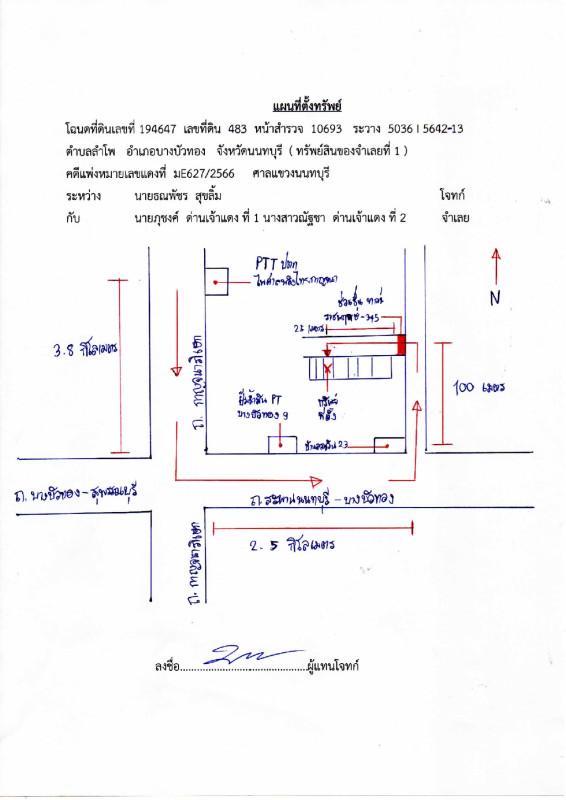 แผนที่ตั้งทรัพย์
โฉนดที่ดินเลขที่ 194647 เลขที่ดิน 483 หน้าสำรวจ 10693 ระวาง 5036 I 5642-13
ตำบลลำโพ อำเภอบางบัวทอง จังหวัดนนทบุรี ( ทรัพย์สินของจำเลยที่ 1 )
คดีแพ่งหมายเลขแดงที่ มE627/2566 ศาลแขวงนนทบุรี
ระหว่าง นายธณพัชร สุขลิ้ม โจทก์
กับ นายภุชงค์ ด่านเจ้าแดง ที่ 1 นางสาวณัฐชา ด่านเจ้าแดง ที่ 2 จำเลย
PTT ปตท
N
ราชพฤกษ์-345
3.8 กิโลเมตร
ถ. กาญจนาภิเษก
100 เมตร
PT
บางบัวทอง 9
ทรัพย์
ที่ตั้ง
23
ถ. บางบัวทอง-สุพรรณบุรี
ถ.สะพานนนทบุรี-บางบัวทอง
2. 5 กิโลเมตร
ถ. กาญจนาภิเษก
ลงชื่อ................................ผู้แทนโจทก์